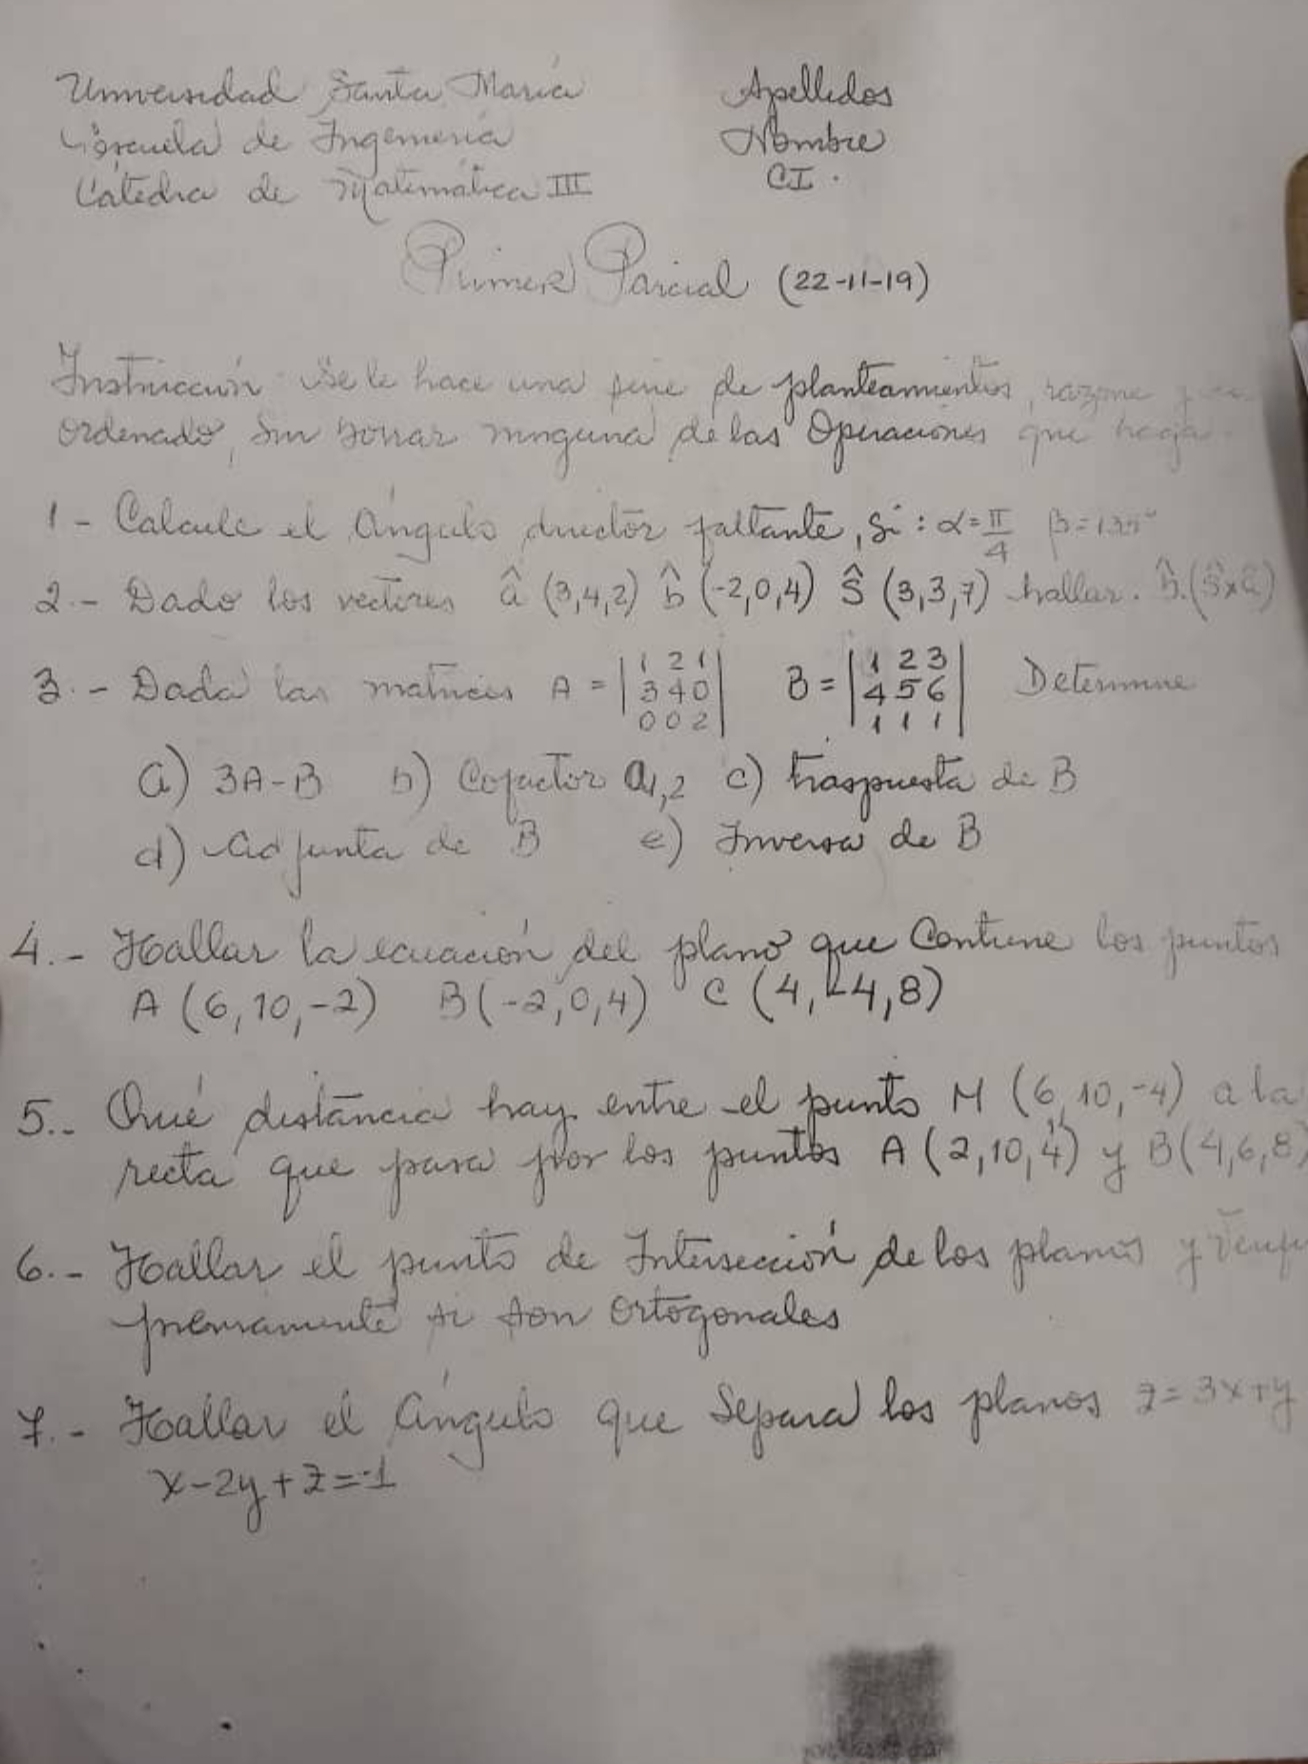 Universidad Santa María
Escuela de Ingeniería
Cátedra de Matemática III
Apellidos
Nombre
CI.
Primer Parcial (22-11-19)
Instrucción se le hace una serie de planteamientos, razone y
Ordenado, sin borrar ninguna de las Operaciones que haga.
1- Calcule el Ángulo director faltante, Si: α=π/4 β=135°
2.- Dado los vectores â (3,4,2) b̂ (-2,0,4) Ŝ (3,3,7) hallar. b̂.(Ŝxâ)
3.- Dada las matrices A = |1 2 1| B = |1 2 3| Determine
|3 4 0| |4 5 6|
|0 0 2| |1 1 1|
a) 3A-B b) Cofactor a1,2 c) traspuesta de B
d) Adjunta de B e) Inversa de B
4.- Hallar la ecuación del plano que Contiene los puntos
A (6,10,-2) B(-2,0,4) C (4,-4,8)
5.- Qué distancia hay entre el punto M (6,10,-4) a la
recta que pasa por los puntos A (2,10,4) y B(4,6,8)
6.- Hallar el punto de Intersección de los planos y
previamente si son Ortogonales
7.- Hallar el Ángulo que Separa los planos z=3x+y
x-2y+z=-1